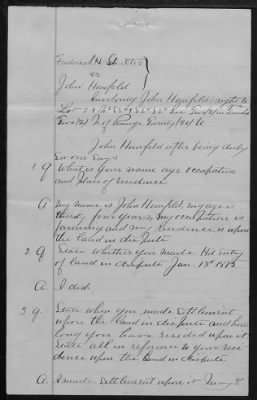 Frederick H
vs
John Humfeld
Involving John Humfeld's right to
Lot
of Range Twenty 24 W
John Humfeld after being duly
Sworn Says
1 Q What is your name age occupation
and place of residence
A My name is John Humfeld my age is
thirty four years, my occupation is
farming and my residence is upon
the land in dispute
2 Q State whether you made Hd Entry
of land in dispute Jan. 13th
A. I did.
3 Q State when you made Settlement
upon the land in dispute and how
long you have resided upon it
State all in reference to your resi
dence upon the land in dispute
A. I made Settlement upon it May